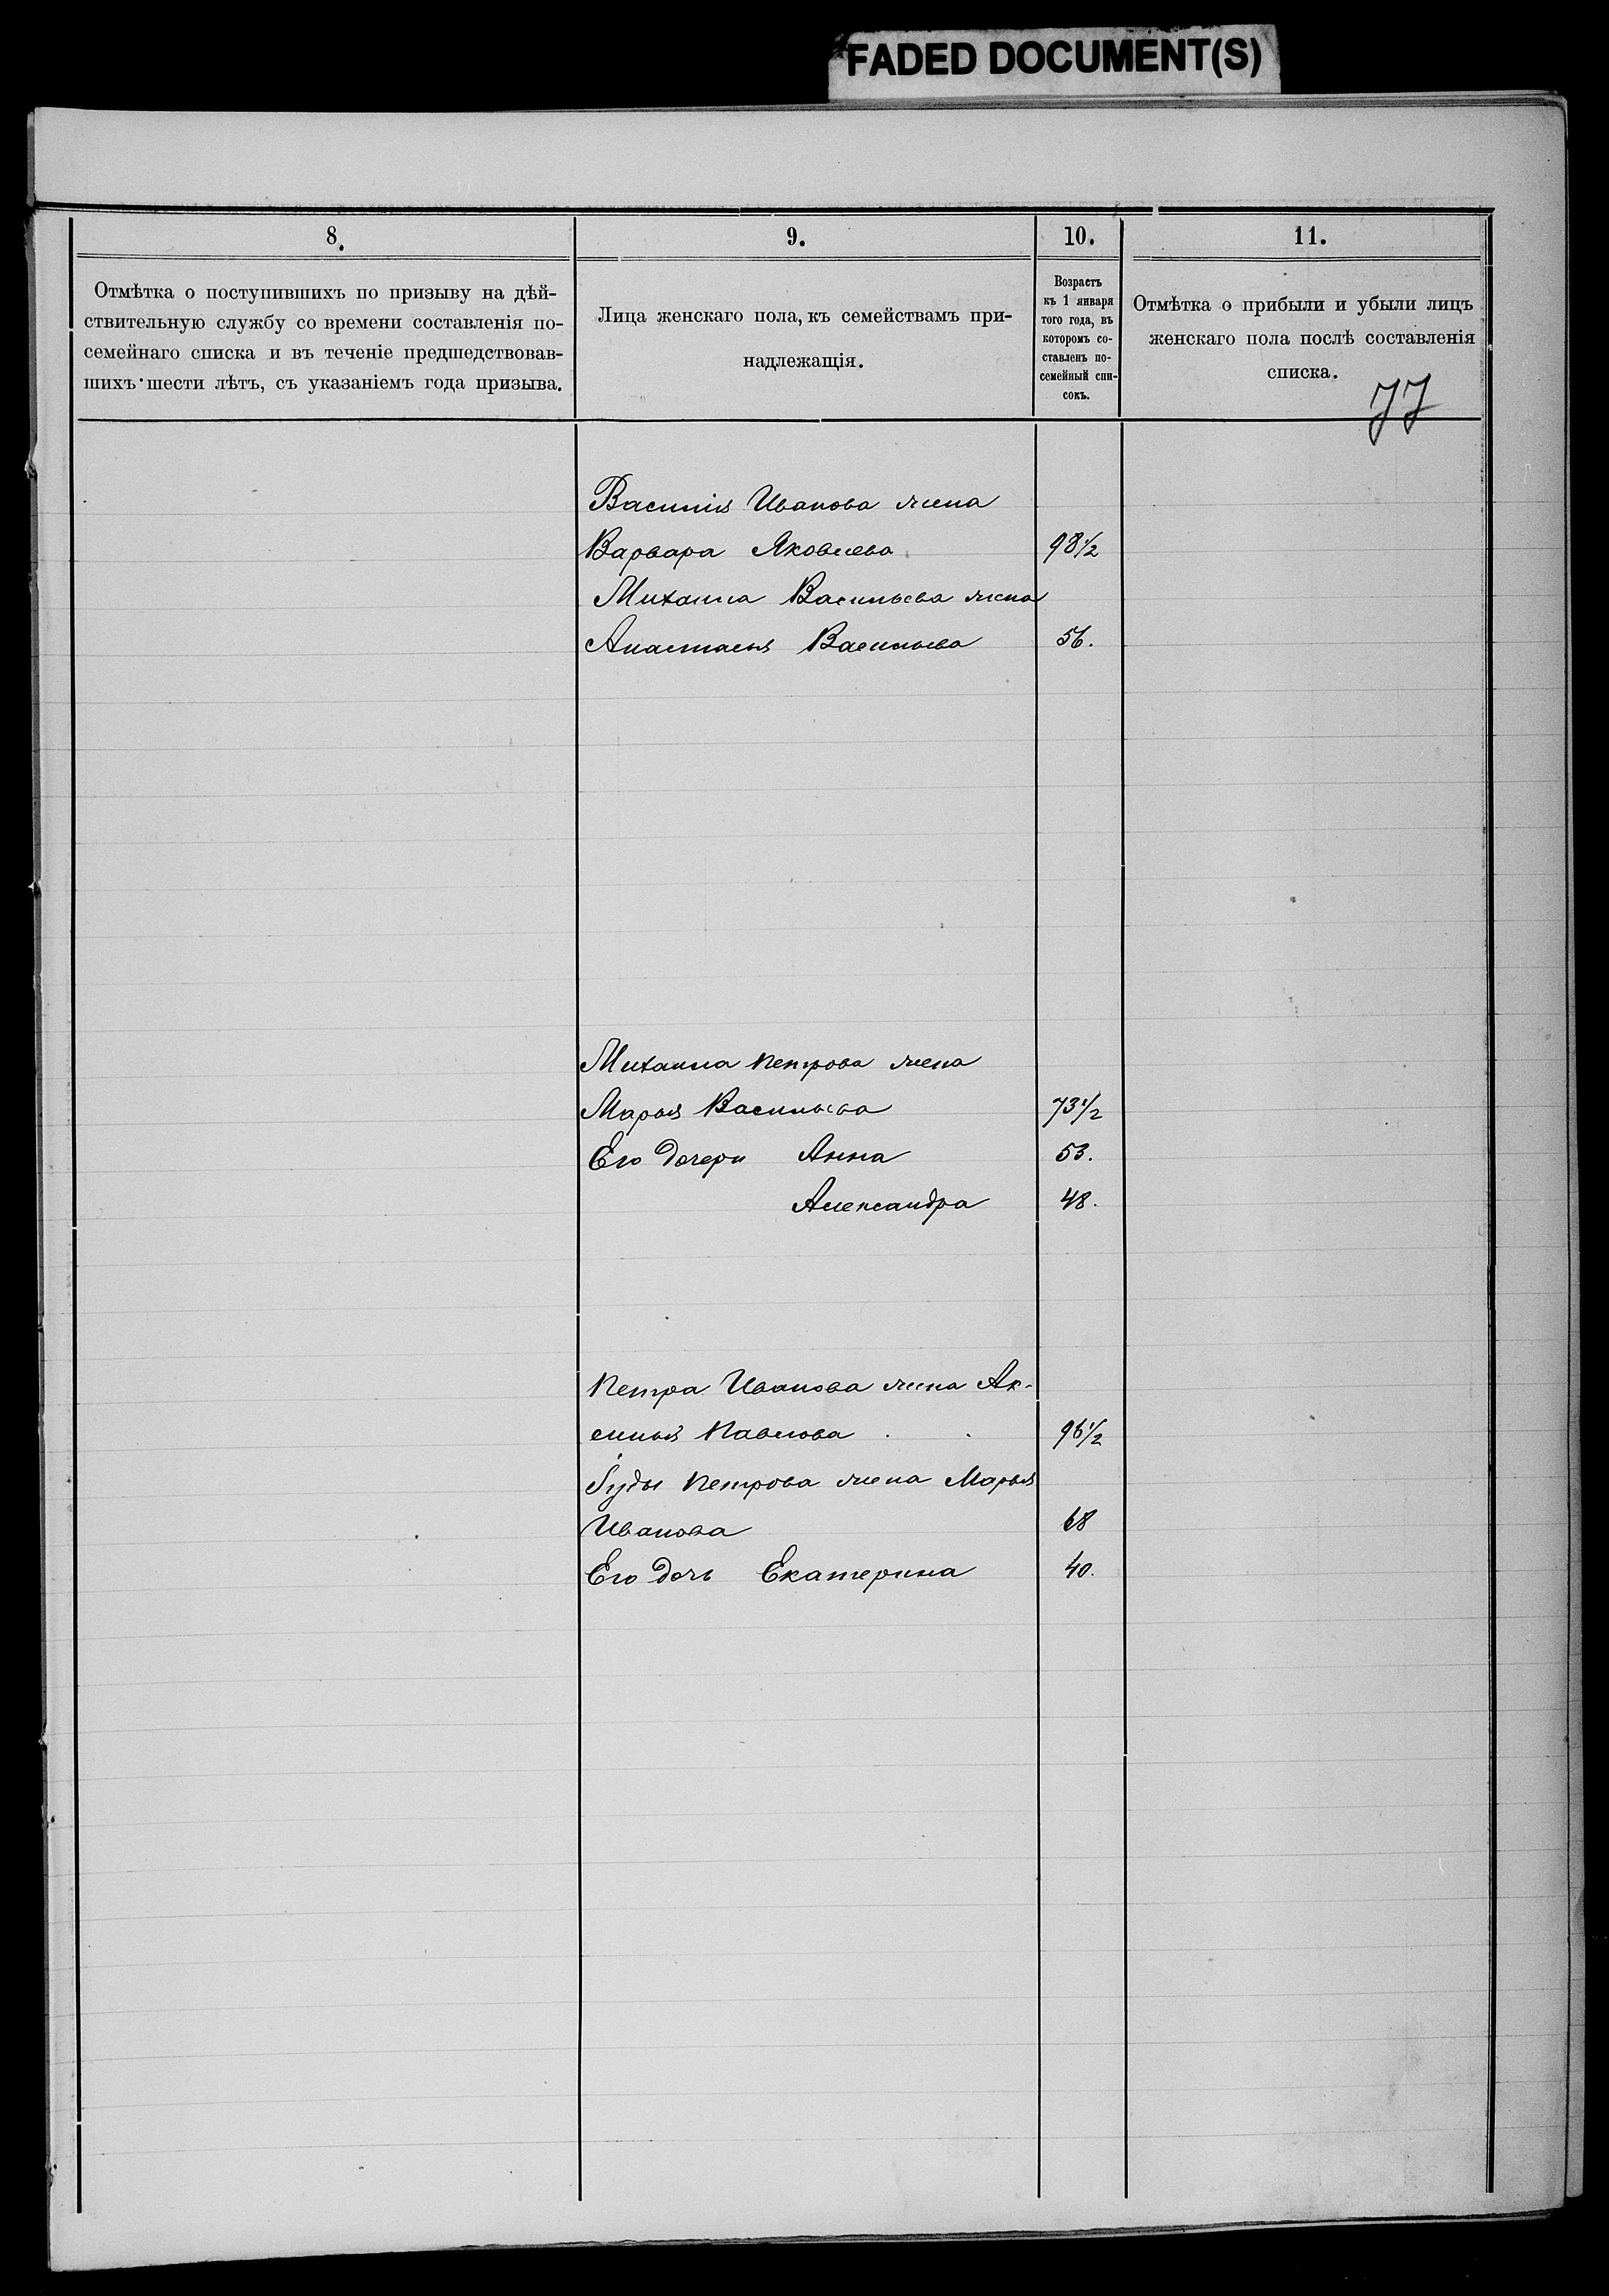 FADED DOCUMENT(S)
8.
9.
10.
11.
Отмѣтка о поступившихъ по призыву на дѣй-
ствительную службу со времени составленія по-
семейнаго списка и въ теченіе предшедствовав-
шихъ шести лѣтъ, съ указаніемъ года призыва.
Лица женскаго пола, къ семействамъ при-
надлежащія.
Возрастъ
къ 1 января
того года, въ
которомъ со-
ставленъ по-
семейный спи-
сокъ.
Отмѣтка о прибыли и убыли лицъ
женскаго пола послѣ составленія
списка.
77
Василія Иванова жена
Варвара Яковлева 98½
Михаила Васильева жена
Анастасья Васильева 56.
Михаила Петрова жена
Марья Васильева 73½
Его дочери Анна 53.
Александра 48.
Петра Иванова жена Ак-
синья Павлова 96½
Іуды Петрова жена Марья
Иванова 68
Его дочь Екатерина 40.